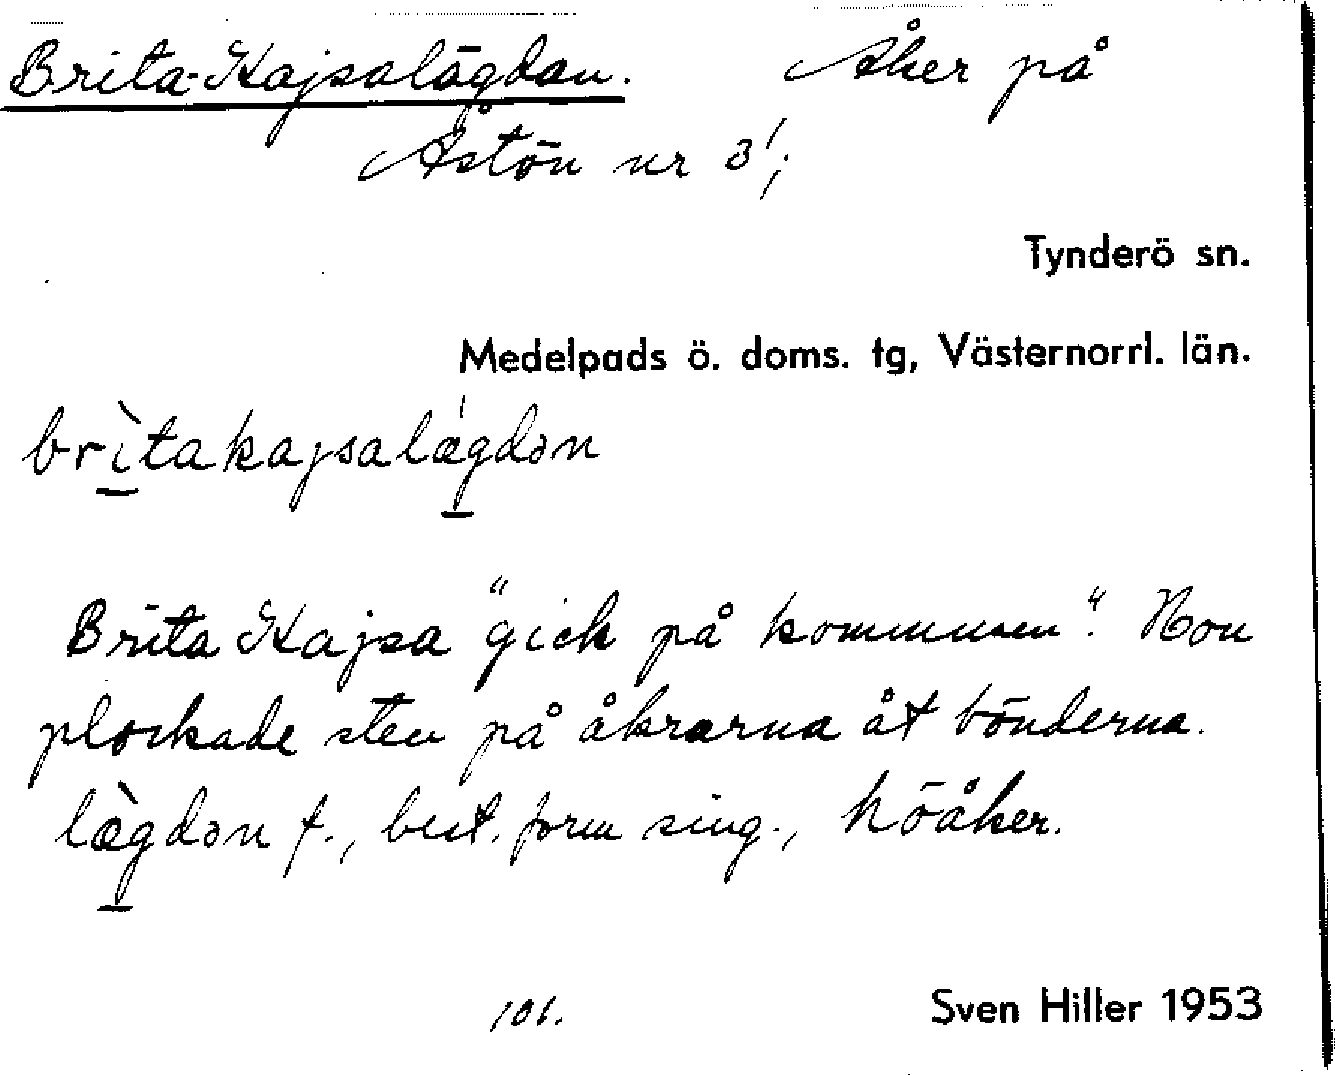 Brita-Kajsalägdan. Åker på
Åstön nr 3¹;
Tynderö sn.
Medelpads ö. doms. tg, Västernorrl. län.
brìtakajsalǽgdən
Brita Kajsa "gick på kommunen". Hon
plockade sten på åkrarna åt bönderna.
læ̀gdən f., best. form sing., höåker.
101.
Sven Hiller 1953